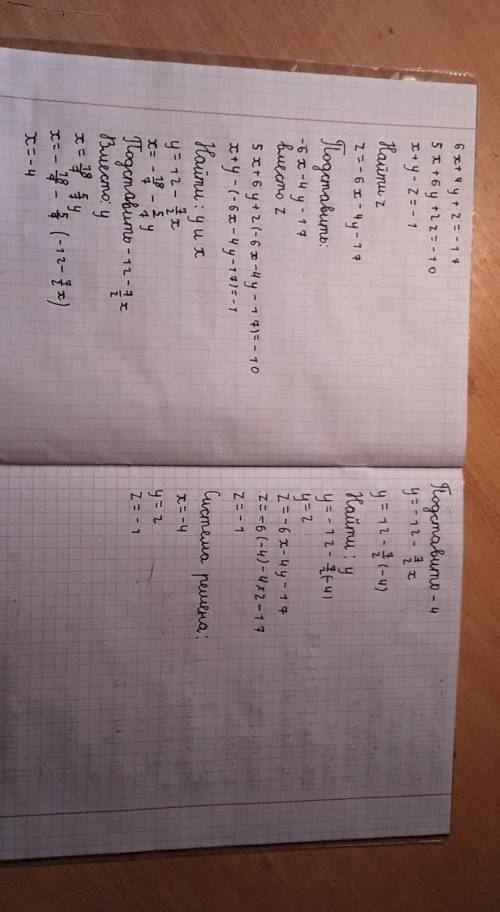 6x+4y+z=-17
5x+6y+2z=-10
x+y-z=-1
Найти z
z=-6x-4y-17
Подставить:
-6x-4y-17
вместо z
5x+6y+2(-6x-4y-17)=-10
x+y-(-6x-4y-17)=-1
Найти: y и x
y=-12-7/2x
x=-18/7-5/7y
Подставить -12-7/2x
Вместо: y
x=-18/7-5/7y
x=-18/7-5/7(-12-7/2x)
x=-4
Подставить -4
y=-12-7/2x
y=-12-7/2(-4)
Найти: y
y=-12-7/2(-4)
y=2
z=-6x-4y-17
z=-6(-4)-4×2-17
z=-1
Система решена:
x=-4
y=2
z=-1